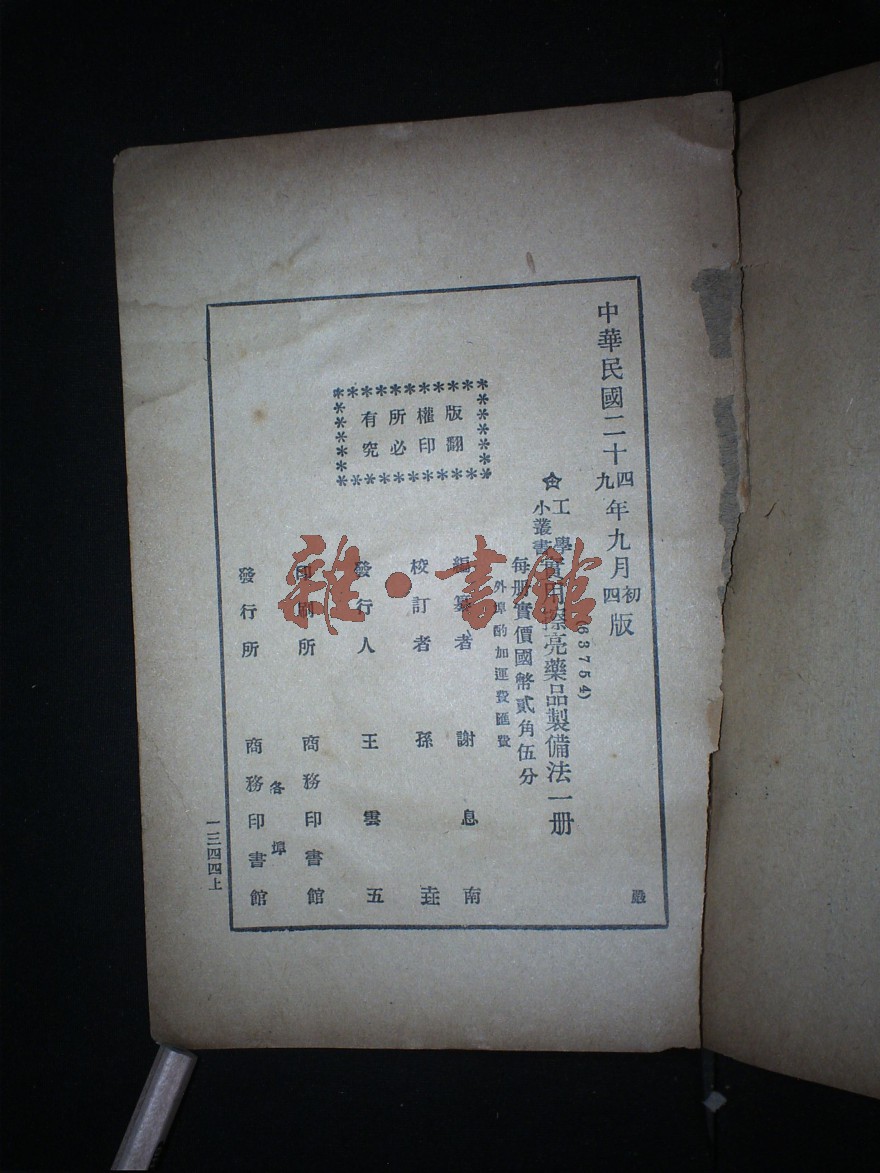 中華民國二十四年九月初版
九四
(63754)
工學小叢書實用擦亮藥品製備法一册
每册實價國幣貳角伍分
外埠酌加運費匯費
版權所有
翻印必究
編纂者 謝息南
校訂者 孫
發行人 王雲五
印刷所 商務印書館
發行所 各埠 商務印書館
一三四四上
嚴
雜·書館